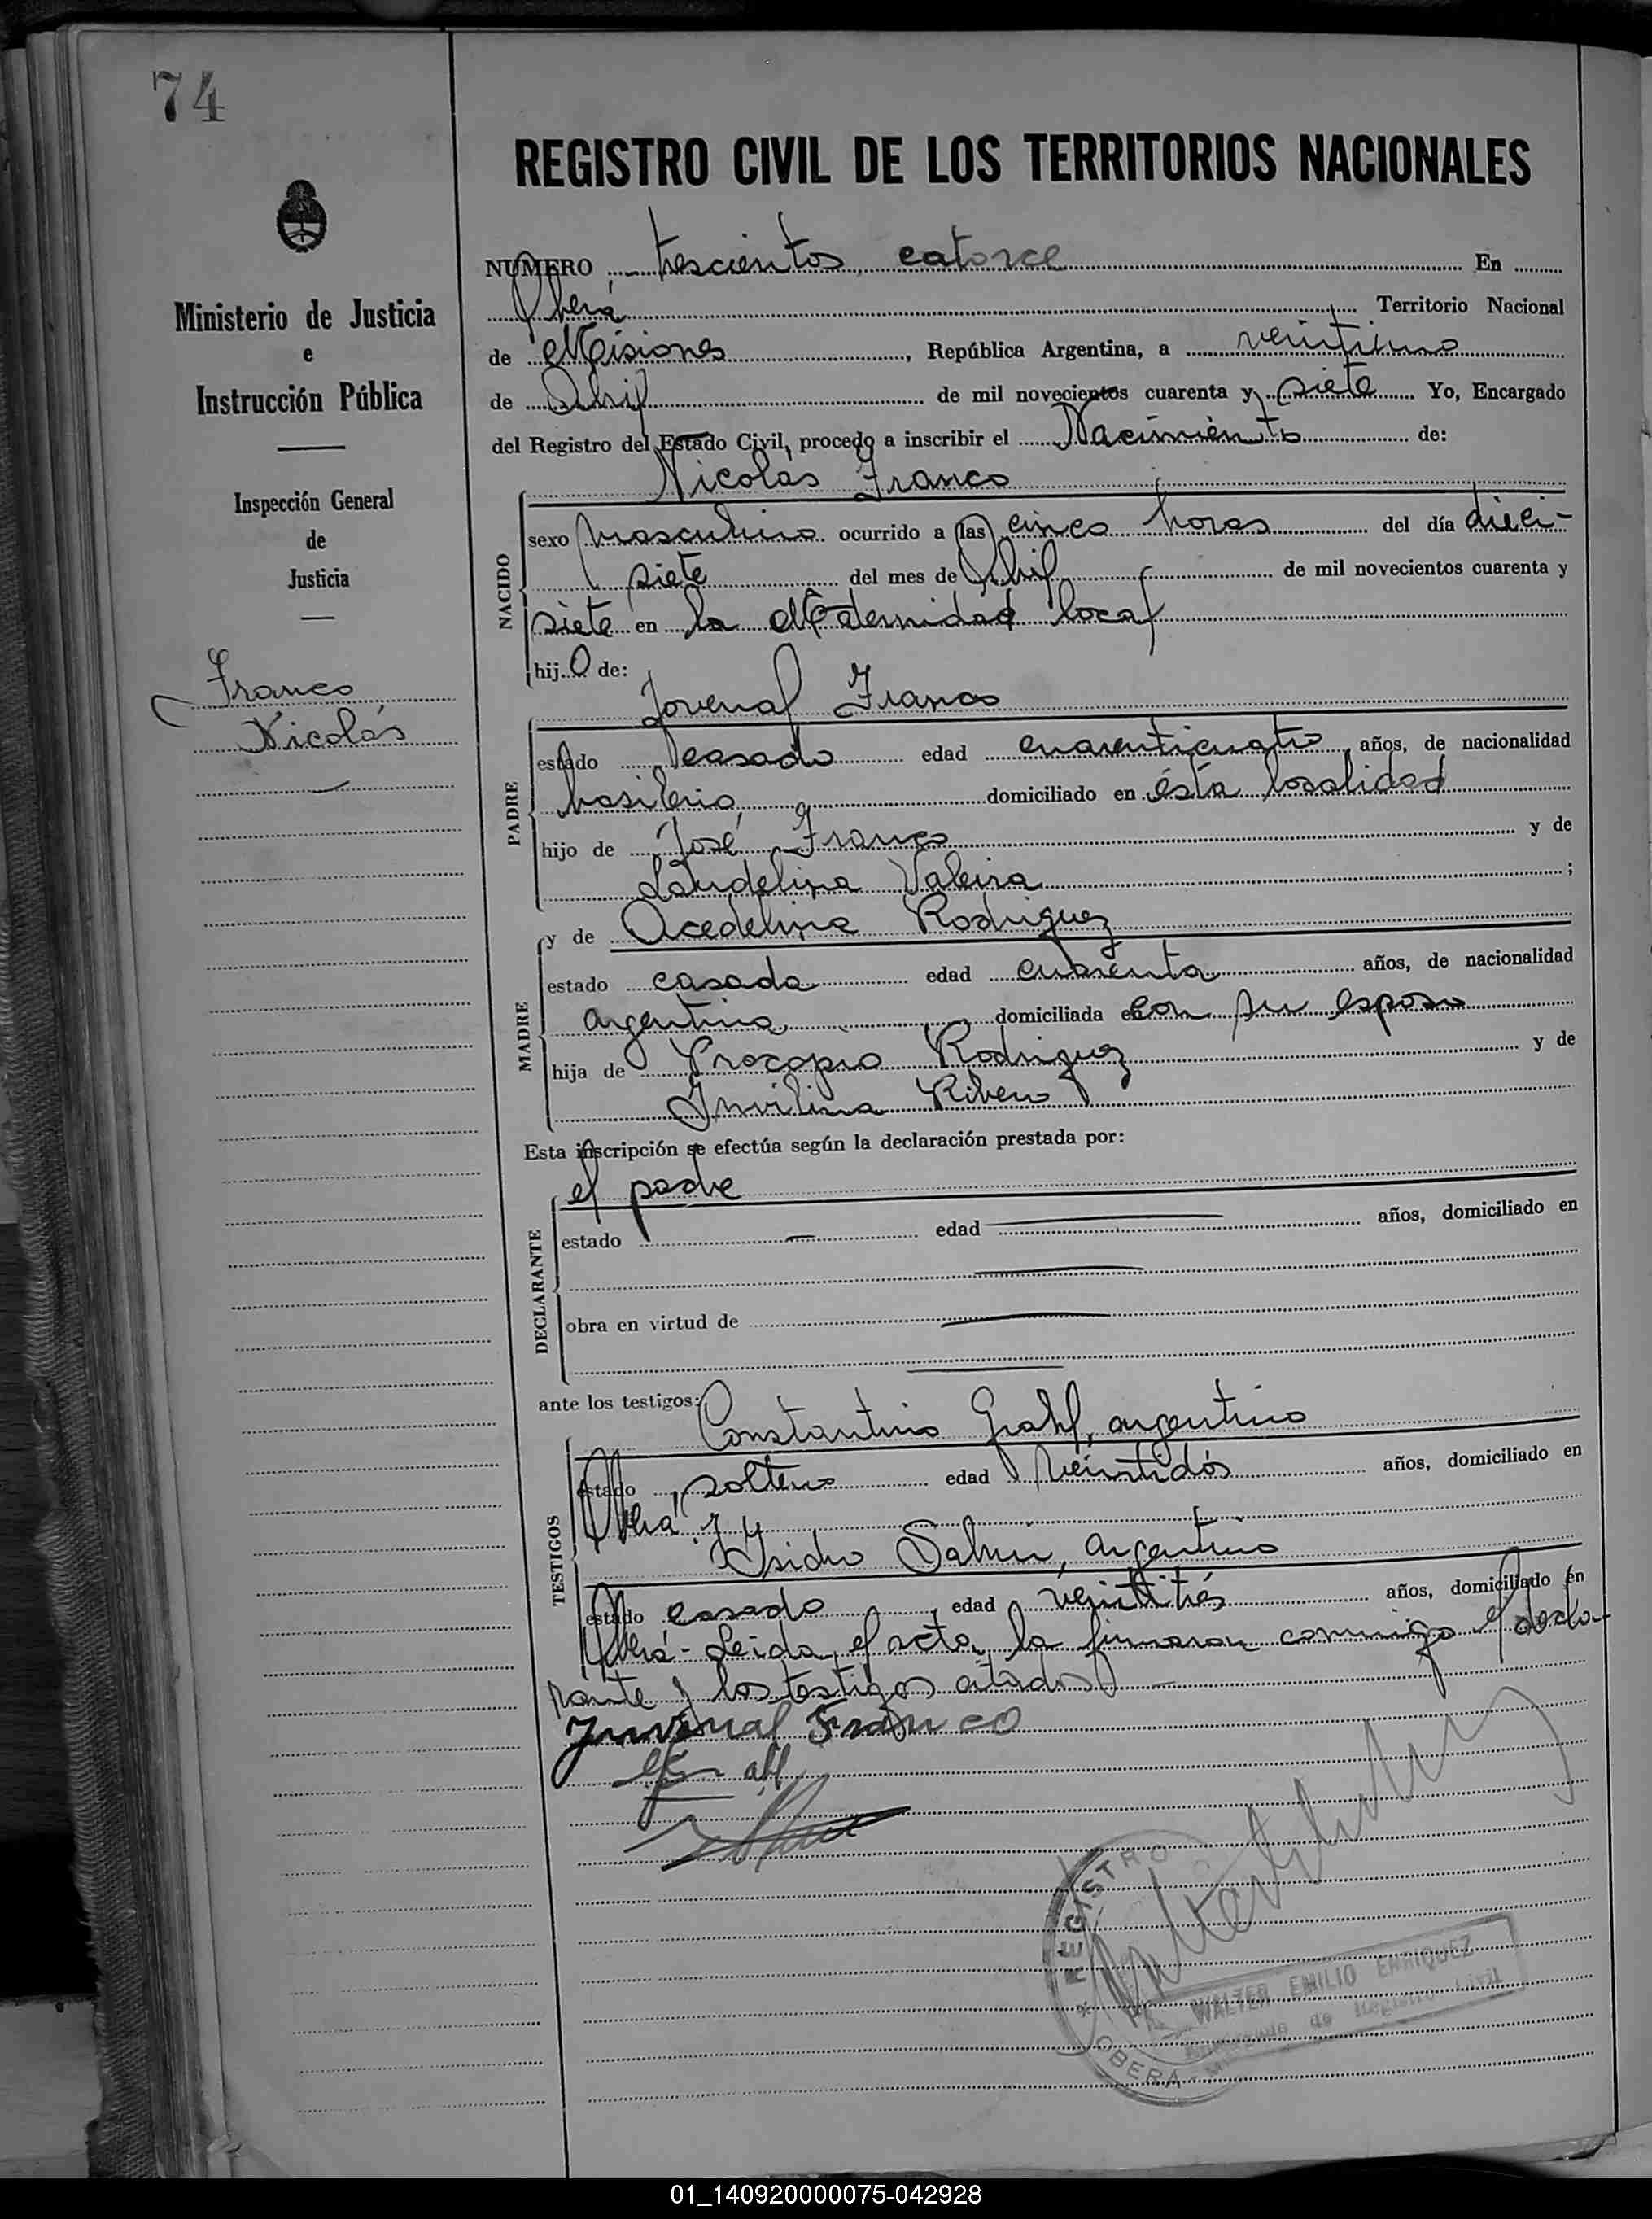 74
REGISTRO CIVIL DE LOS TERRITORIOS NACIONALES
Ministerio de Justicia
e
Instrucción Pública
Inspección General
de
Justicia
Franco
Nicolás
NUMERO trescientos catorce En
Oberá Territorio Nacional
de Misiones, República Argentina, a veintiuno
de Abril de mil novecientos cuarenta y siete Yo, Encargado
del Registro del Estado Civil, procedo a inscribir el Nacimiento de:
Nicolas Franco
NACIDO
sexo masculino ocurrido a las cinco horas del día dieci-
siete del mes de Abril de mil novecientos cuarenta y
siete en la Maternidad local
hijo de:
Jovenal Franco
PADRE
estado casado edad cuarenticuatro años, de nacionalidad
brasilero domiciliado en ésta localidad
hijo de José Franco y de
Laudelina Valeira ;
MADRE
y de Acedelina Rodriguez
estado casada edad cuarenta años, de nacionalidad
argentina domiciliada en con su esposo
hija de Procopio Rodriguez y de
Ribero
Esta inscripción se efectúa según la declaración prestada por:
el padre
DECLARANTE
estado — edad — años, domiciliado en
obra en virtud de
ante los testigos:
Constantino Grahl, argentino
TESTIGOS
estado soltero edad veintidós años, domiciliado en
Oberá y
Isidro argentino
estado casado, edad veintitrés años, domiciliado en
Oberá - Leida el acta, la firmaron conmigo el decla-
rante y los testigos citados —
Juvenal Franco
REGISTRO
WALTER EMILIO ENRIQUEZ
Encargado de Registro Civil
OBERA
01_140920000075-042928